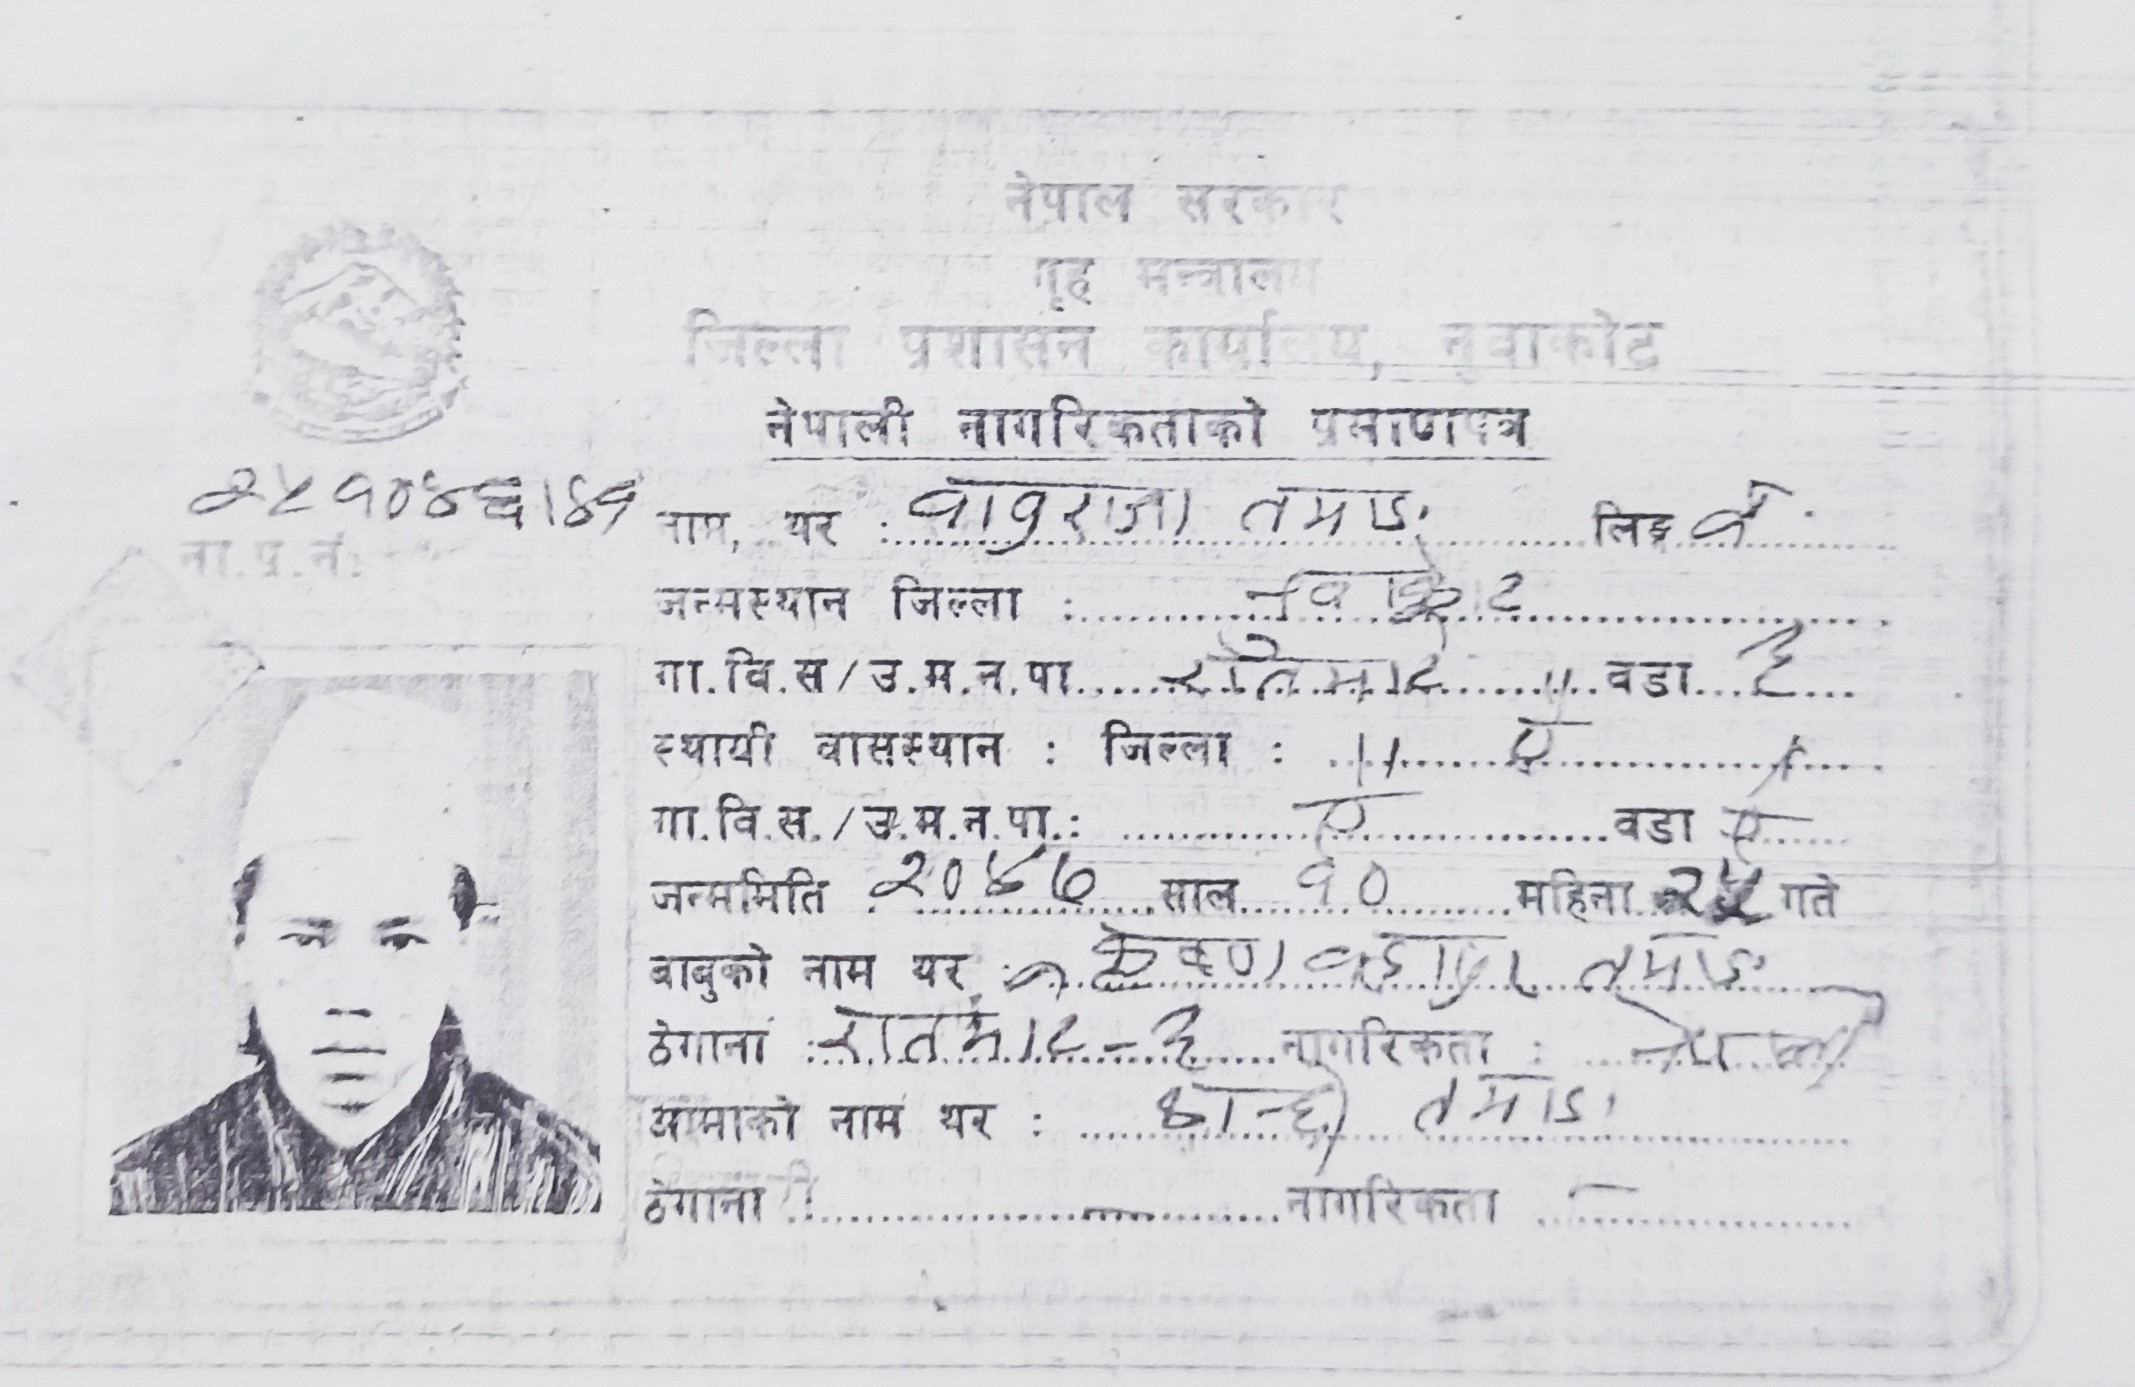 नेपाल सरकार
गृह मन्त्रालय
जिल्ला प्रशासन कार्यालय, नुवाकोट
नेपाली नागरिकताको प्रमाणपत्र
ना.प्र.नं.
नाम, थर : तामाङ लिङ्ग
जन्मस्थान जिल्ला : नुवाकोट
गा.वि.स/उ.म.न.पा. वडा ३
स्थायी वासस्थान : जिल्ला : ऐ
गा.वि.स./उ.म.न.पा.: ऐ वडा ऐ
जन्ममिति २०४७ साल १० महिना २५ गते
बाबुको नाम थर : कृष्ण बहादुर तामाङ
ठेगाना : - ३ नागरिकता : नेपाली
आमाको नाम थर : कान्छी तामाङ
ठेगाना : — नागरिकता —